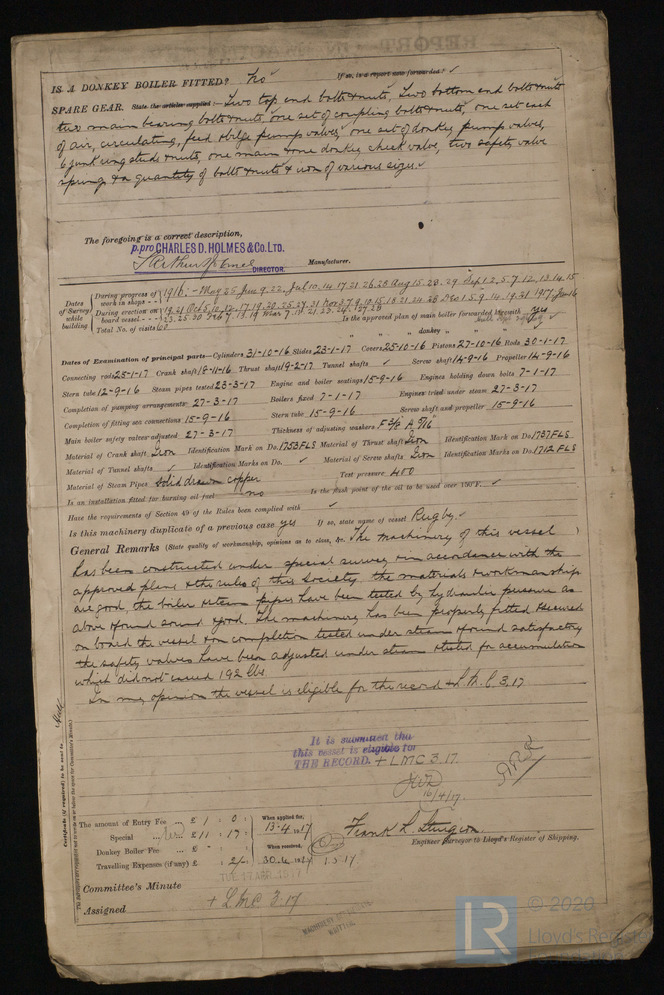 IS A DONKEY BOILER FITTED? No If so, is a report now forwarded? ✓
SPARE GEAR. State the articles supplied:— Two top end bolts & nuts, Two bottom end bolts & nuts
two main bearing bolts & nuts, one set of coupling bolts & nuts, one set each
of air, circulating, feed & bilge pump valves, one set of donkey pump valves,
6 junk ring studs & nuts, one main & one donkey check valve, two safety valve
springs & a quantity of bolts & nuts & iron of various sizes. ✓
The foregoing is a correct description,
p.pro CHARLES D. HOLMES & Co. LTD.
DIRECTOR. Manufacturer.
Dates of Survey while building
During progress of work in shops - - 1916:- May 25 Jun 9. 22. Jul 10. 14. 17. 21. 26. 28 Aug 15. 23. 29 Sep 1. 2. 5. 7. 12. 13. 14. 15
During erection on board vessel - - -
Total No. of visits 60 Is the approved plan of main boiler forwarded herewith Yes
" " " donkey " " "
Dates of Examination of principal parts—Cylinders 31-10-16 Slides 23-1-17 Covers 25-10-16 Pistons 27-10-16 Rods 30-1-17
Connecting rods 25-1-17 Crank shaft 18-11-16 Thrust shaft 19-2-17 Tunnel shafts ✓ Screw shaft 14-9-16 Propeller 14-9-16
Stern tube 12-9-16 Steam pipes tested 23-3-17 Engine and boiler seatings 15-9-16 Engines holding down bolts 7-1-17
Completion of pumping arrangements 27-3-17 Boilers fixed 7-1-17 Engines tried under steam 27-3-17
Completion of fitting sea connections 15-9-16 Stern tube 15-9-16 Screw shaft and propeller 15-9-16
Main boiler safety valves adjusted 27-3-17 Thickness of adjusting washers
Material of Crank shaft Iron Identification Mark on Do. 1753FLS Material of Thrust shaft Iron Identification Mark on Do. 1737FLS
Material of Tunnel shafts ✓ Identification Marks on Do. ✓ Material of Screw shafts Iron Identification Marks on Do. 1712 FLS
Material of Steam Pipes Solid drawn copper Test pressure 400
Is an installation fitted for burning oil fuel no Is the flash point of the oil to be used over 150°F. ✓
Have the requirements of Section 49 of the Rules been complied with ✓
Is this machinery duplicate of a previous case yes If so, state name of vessel Rugby. ✓
General Remarks (State quality of workmanship, opinions as to class, &c. The machinery of this vessel )
has been constructed under special survey & in accordance with the
approved plans & the rules of this Society. the materials & workmanship
are good, the boiler & steam pipes have been tested by hydraulic pressure as
above & found sound & good. The machinery has been properly fitted & secured
on board the vessel & on completion tested under steam & found satisfactory
the safety valves have been adjusted under steam & tested for accumulation
which did not exceed 192 lbs.
In my opinion the vessel is eligible for the record + L.M.C. 3.17
It is submitted that
this vessel is eligible for
THE RECORD. + LMC 3.17.
16/4/17.
Certificate (if required) to be sent to
The amount of Entry Fee ... £ 1 : 0 : When applied for,
Special ... £ 11 : 17 : 13-4-1917
Donkey Boiler Fee ... £ - : When received,
Travelling Expenses (if any) £ : 2/- : 30.4.1917 1.5.17
Frank L. Sturgeon
Engineer Surveyor to Lloyd's Register of Shipping.
TUE. 17 APR. 1917
Committee's Minute
Assigned + LMC 3.17
MACHINERY CERTIFICATE
WRITTEN
LR © 2020
Lloyd's Register